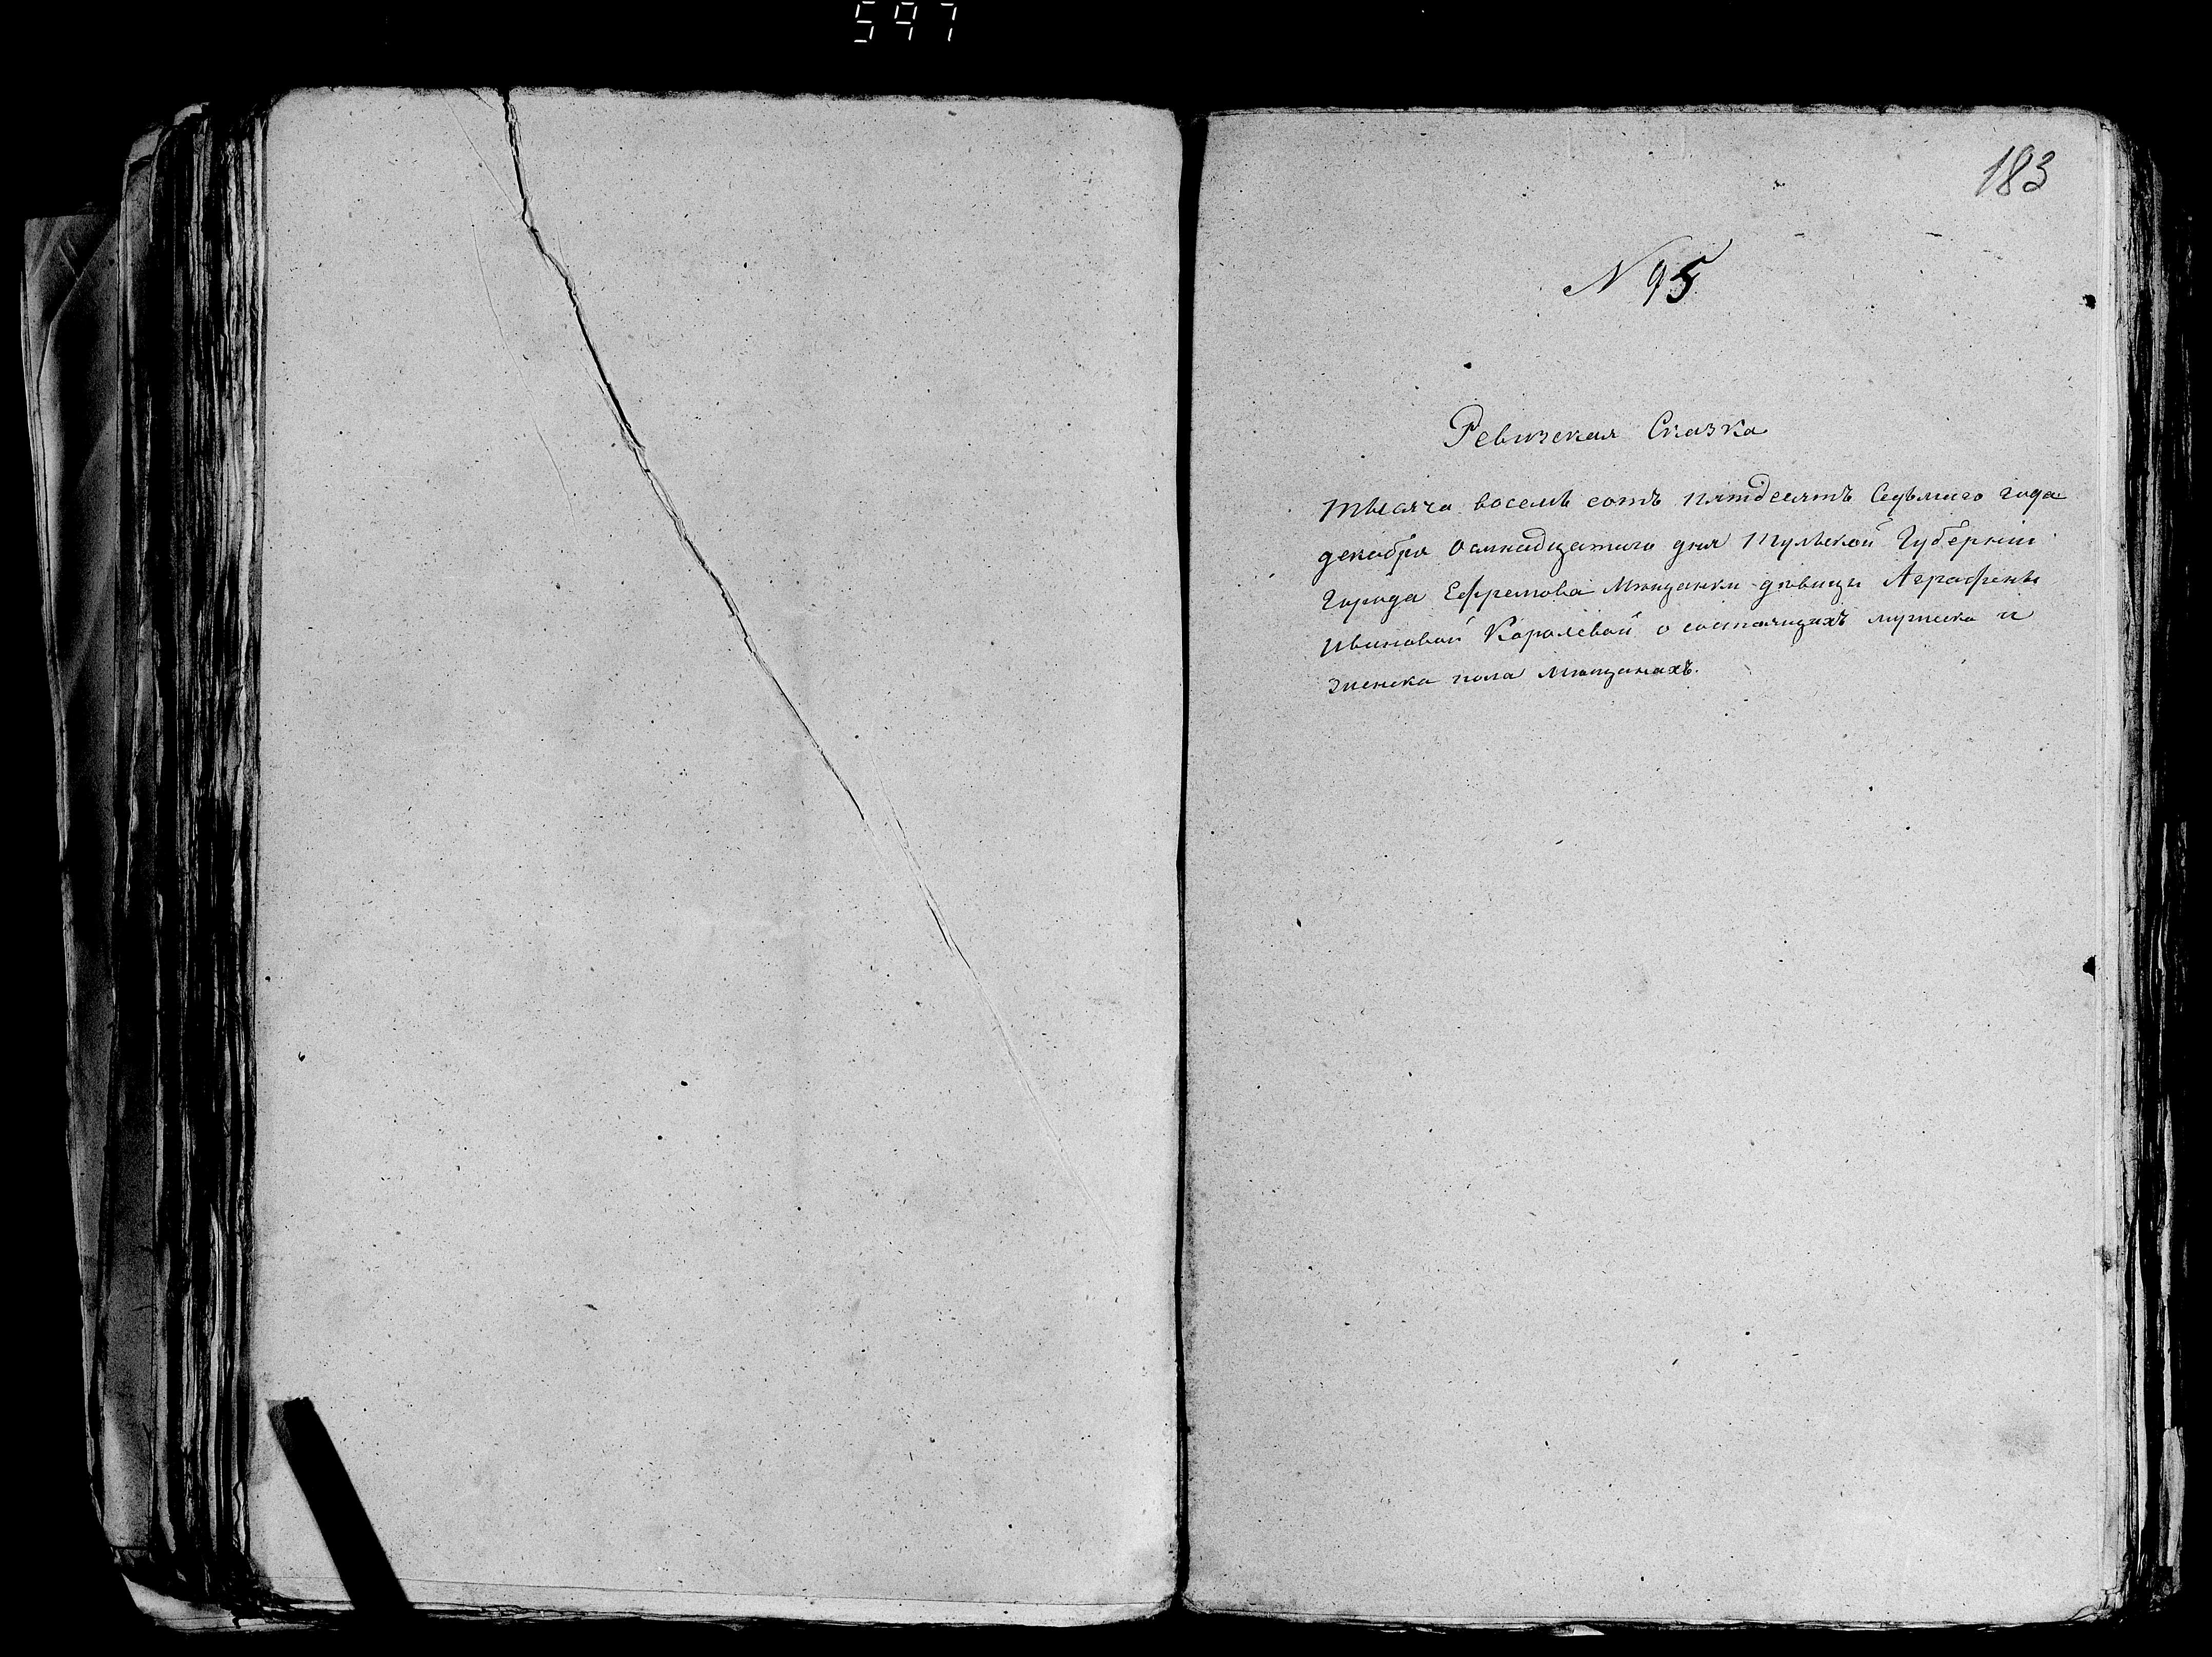 597
183
N 95
Ревизская Сказка
тысяча восемь сотъ пятдесятъ Седьмого года
декабря осмнадцатого дня Тульской Губерніи
Города Ефремова Мѣщанки дѣвицы Аграфены
Ивановой Королевой о состоящихъ мужска и
женска пола мѣщанахъ.